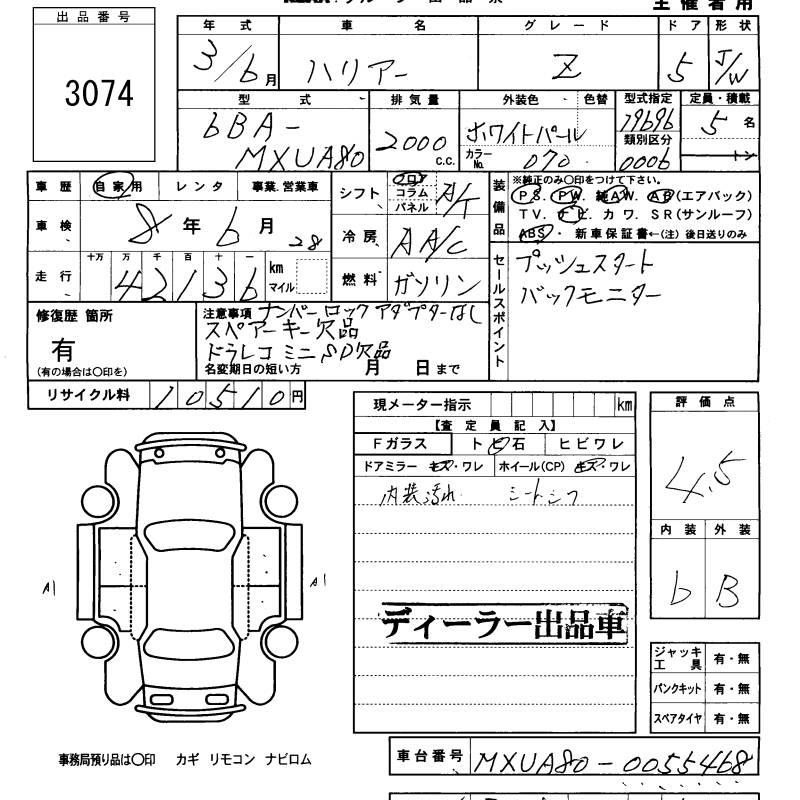 主催者用
出品番号
3074
年式 車名 グレード ドア 形状
3/6月 ハリアー Z 5 J/W
型式 排気量 外装色・色替 型式指定 定員・積載
6BA-MXUA80 2000c.c. ホワイトパール 19696 5名
カラーNo. 070 類別区分 0006 トン
車歴 自家用 レンタ 事業.営業車
車検 8年6月 28
走行 十万 万 千 百 十 一
42136 km マイル
シフト フロア コラム パネル A/T
冷房 AA/C
燃料 ガソリン
装備品
※純正のみ〇印をつけて下さい。
PS. PW. 純AW. AB(エアバック)
TV. ナビ カワ. SR(サンルーフ)
ABS・ 新車保証書←(注)後日送りのみ
セールスポイント
プッシュスタート
バックモニター
修復歴 箇所
有
(有の場合は〇印を)
注意事項 ナンバーロックアダプターなし
スペアーキー欠品
ドラレコミニSD欠品
名変期日の短い方 月 日まで
リサイクル料 10510円
現メーター指示 km
【査定員記入】
Fガラス トビ石 ヒビワレ
ドアミラー キズ・ワレ ホイール(CP) キズ・ワレ
内装汚れ シートシワ
ディーラー出品車
評価点
4.5
内装 外装
b B
A1 A1
ジャッキ工具 有・無
パンクキット 有・無
スペアタイヤ 有・無
事務局預り品は〇印 カギ リモコン ナビロム
車台番号 MXUA80-0055468